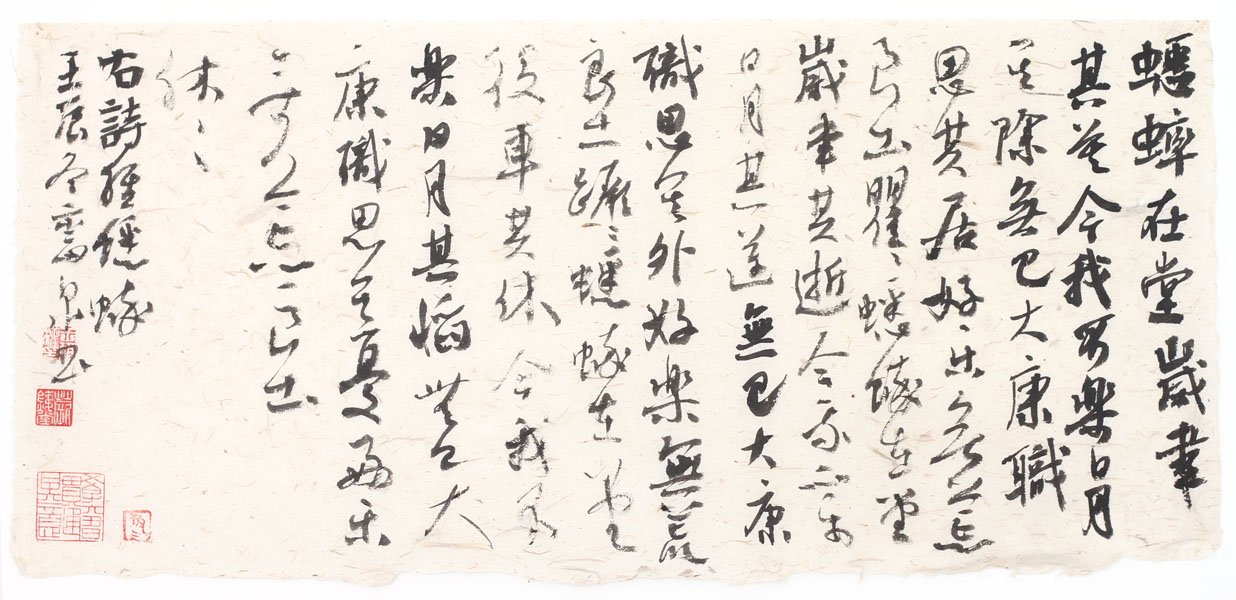 蟋蟀在堂歲聿
其莫今我不樂日月
其除無已大康職
思其居好樂無荒
良士瞿〻蟋蟀在堂
歲聿其逝今我不樂
日月其邁無已大康
職思其外好樂無荒
良士蹶〻蟋蟀在堂
役車其休今我不
樂日月其慆無已大
康職思其憂好樂
無荒良士
休〻
右詩經蟋蟀
壬辰冬書